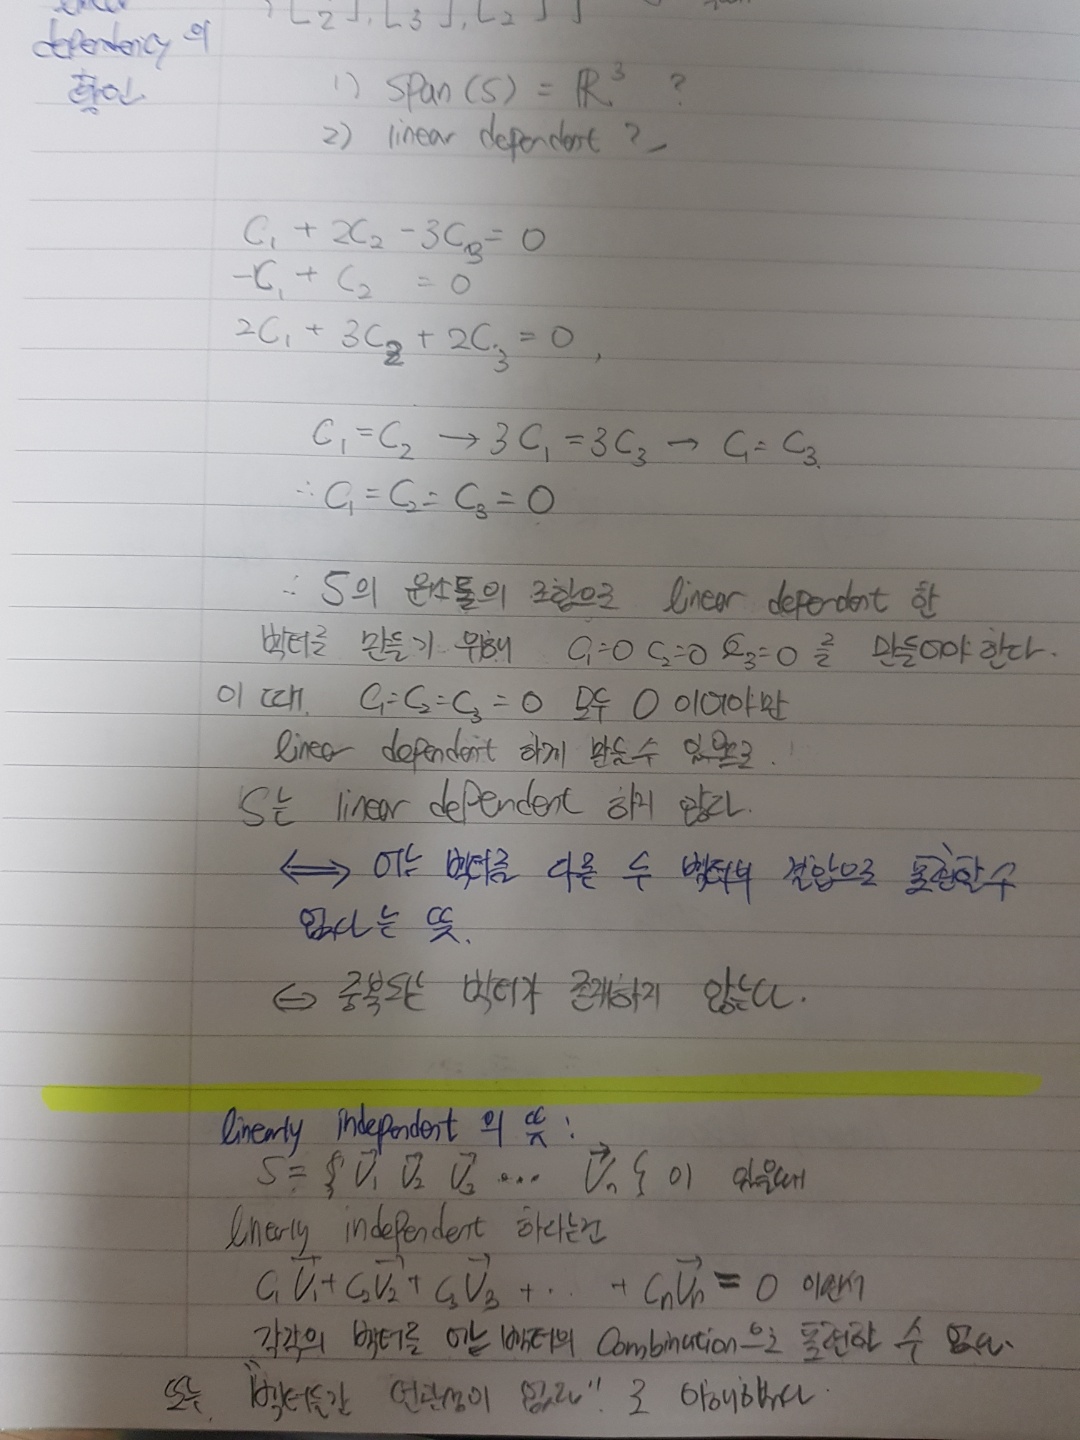 dependency의
확인
[2], [3], [2]
1) Span(S) = ℝ³ ?
2) linear dependent ?
C₁ + 2C₂ - 3C₃ = 0
-C₁ + C₂ = 0
2C₁ + 3C₂ + 2C₃ = 0,
C₁ = C₂ → 3C₁ = 3C₃ → C₁ = C₃.
∴ C₁ = C₂ = C₃ = 0
∴ S의 원소들의 조합으로 linear dependent 한
벡터를 만들기 위해 C₁=0 C₂=0 C₃=0 를 만들어야 한다.
이 때, C₁=C₂=C₃ = 0 모두 0 이어야만
linear dependent 하게 만들 수 있으므로.
S는 linear dependent 하지 않다.
⟺ 어느 벡터를 다른 두 벡터의 결합으로 표현할 수
없다는 뜻.
⇔ 중복되는 벡터가 존재하지 않는다.
linearly independent 의 뜻 :
S = { V⃗₁ V⃗₂ V⃗₃ ... V⃗ₙ } 이 있을때
linearly independent 하다는건
C₁V⃗₁ + C₂V⃗₂ + C₃V⃗₃ + ... + CₙV⃗ₙ = 0 이면서
각각의 벡터를 어느 벡터의 Combination으로 표현할 수 없다.
또는 "벡터들간 연관성이 없다" 로 이해하였다.